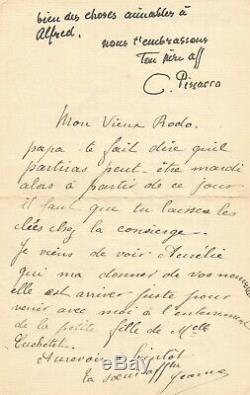 bien des choses aimables à
Alfred.
nous t'embrassons
Ton père aff
C. Pissarro
Mon Vieux Rodo.
papa te fait dire qu'il
partiras peut-être mardi
alors à partir de ce jour
il faut que tu laisse les
clées chez la consierge.
Je viens de voir Aurélie
qui ma donner de vos nouvelles
elle est arriver juste pour
venir avec moi à l'enterrement
de la petite fille de Melle
Aurevoir bientôt
ta sœur aff
Jeanne